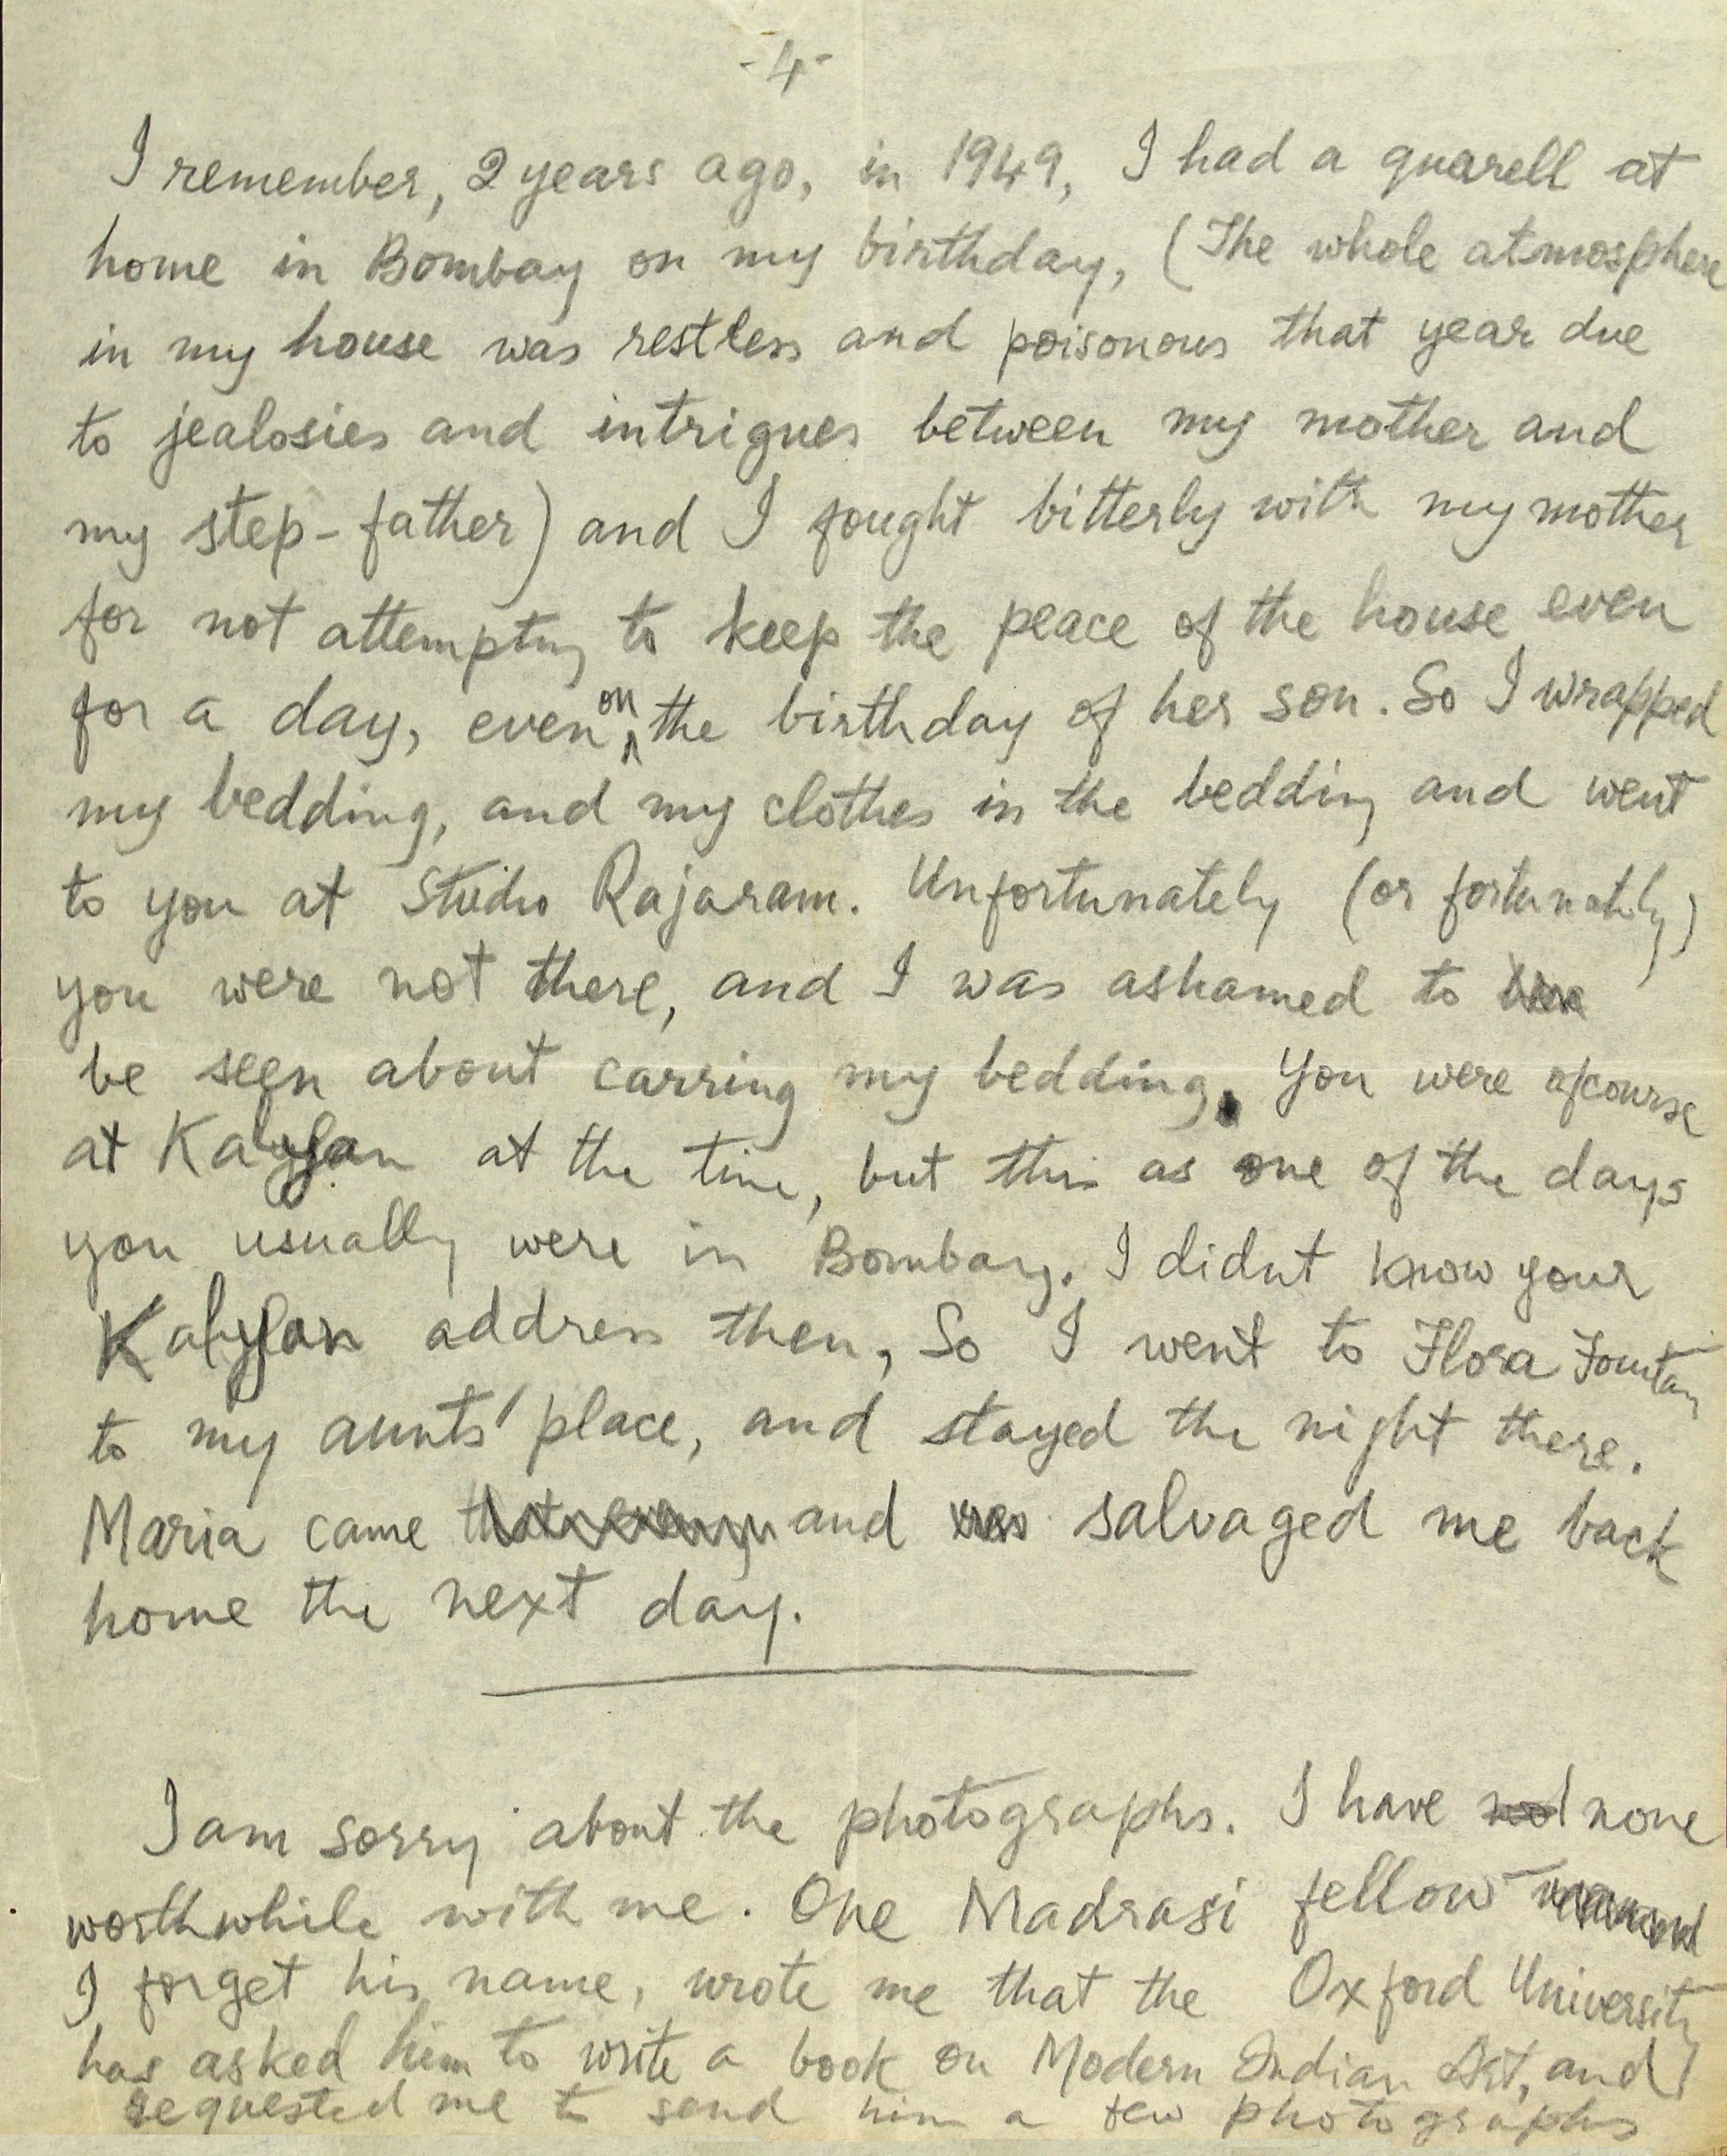 -4-
I remember, 2 years ago, in 1949, I had a quarell at
home in Bombay on my birthday, (The whole atmosphere
in my house was restless and poisonous that year due
to jealosies and intrigues between my mother and
my step-father) and I fought bitterly with my mother
for not attempting to keep the peace of the house even
for a day, even on the birthday of her son. So I wrapped
my bedding, and my clothes in the bedding and went
to you at Studio Rajaram. Unfortunately (or fortunately)
you were not there, and I was ashamed to
be seen about carring my bedding. You were ofcourse
at Kalyan at the time, but this as one of the days
you usually were in Bombay. I didnt know your
Kalyan address then, So I went to Flora Fountain
to my aunts' place, and stayed the night there.
Maria came and salvaged me back
home the next day.
I am sorry about the photographs. I have none
worthwhile with me. One Madrasi fellow
I forget his name, wrote me that the Oxford University
has asked him to write a book on Modern Indian Art, and
requested me to send him a few photographs